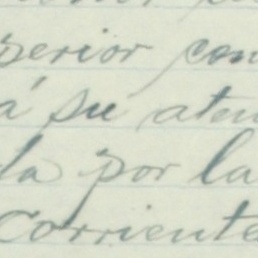 perior con
á su aten
la por la
Corriente